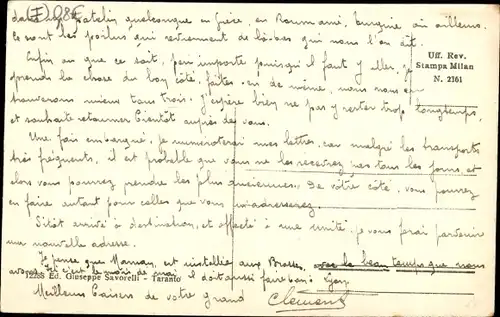 (I) 98E
dans un patelin quelconque en Grèce, en Roumanie, Turquie ou ailleurs.
Ce sont les poilus qui reviennent de là-bas qui nous l'on dit.
Enfin où que ce soit, peu importe puisqu'il faut y aller, je
prends la chose du bon côté, faites-en de même, nous nous en
trouverons mieux tous trois. J'espère bien ne pas y rester trop longtemps,
et souhaite retourner bientôt auprès de vous.
Une fois embarqué, je numéroterai mes lettres, car malgré les transports
très fréquents, il est probable que vous ne les recevrez pas tous les jours, et
alors vous pourrez prendre les plus anciennes. De vôtre côté, vous pourrez
en faire autant pour celles que vous m'adresserez.
Sitôt arrivé à destination, et affecté à une unité, je vous ferai parvenir
ma nouvelle adresse.
Je pense que Maman est installée aux Brosses, avec le beau temps que nous
avons ici c'est le mois de mai il doit aussi faire bon à Lyon.
Meilleurs baisers de votre grand Clément
Uff. Rev.
Stampa Milan
N. 2161
12288 Ed. Giuseppe Savorelli - Taranto